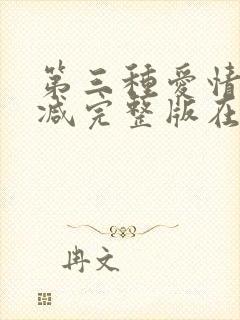 第三種愛情
减完整版在
冉文